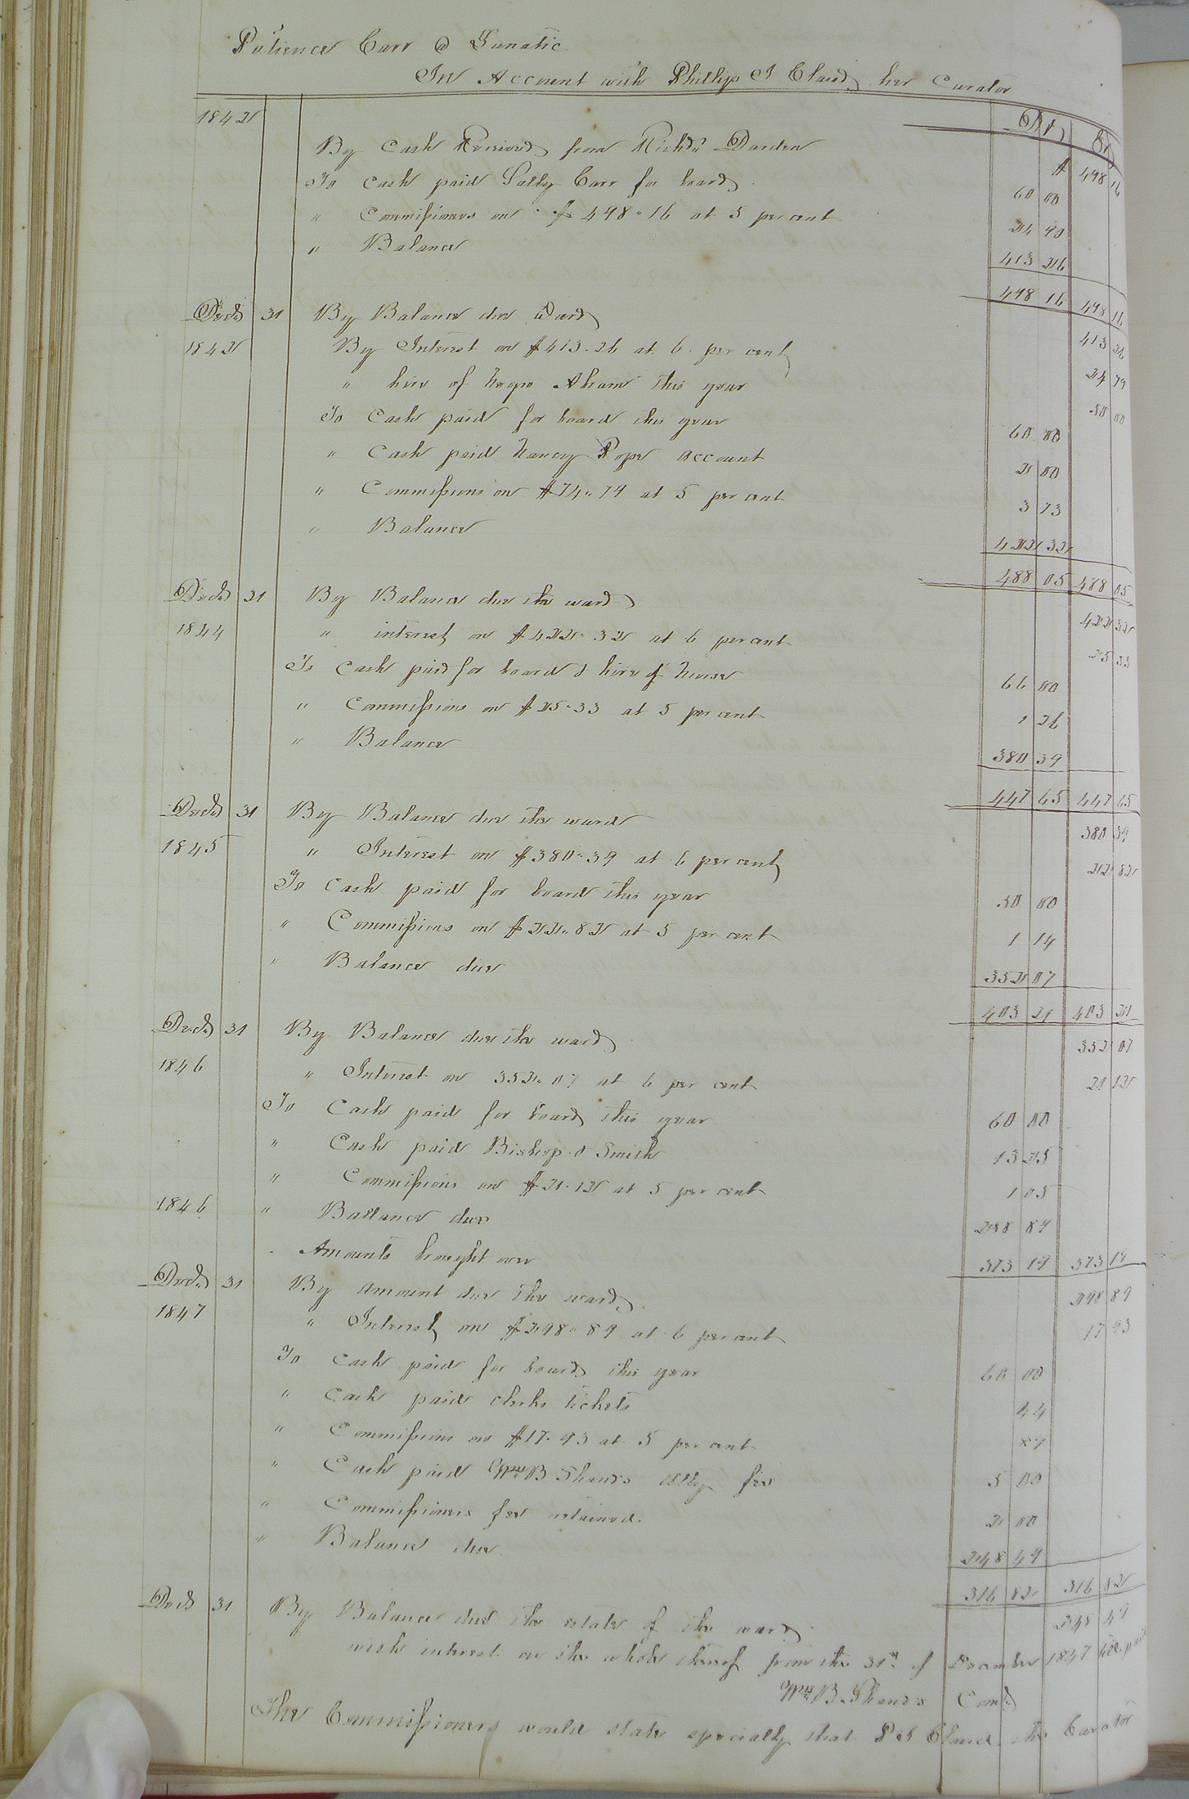 Patience Carr a Lunatic
In Account with Phillip J Claud, her Curator
1842 Dr Cr
By Cash Received from Richd Darden $ 498 16
To Cash paid Sally Carr for board 60 00
" Commissions on $498.16 at 5 per cent 24 90
" Balance 413 26
498 16 498 16
Decr 31 By Balance due Ward 413 26
By Interest on $413.26 at 6 per cent 24 79
" hire of Negro Abram this year 50 00
To Cash paid for board this year 60 00
" Cash paid Nancy Pope account 2 00
" Commissions on $74.79 at 5 per cent 3 73
" Balance 422 32
488 05 488 05
Decr 31 By Balance due the ward 422 32
1844 " interest on $422.32 at 6 per cent 25 33
To Cash paid for board & hire of Nurse 66 00
" Commissions on $25.33 at 5 per cent 1 26
" Balance 380 39
447 65 447 65
Decr 31 By Balance due the ward 380 39
1845 " Interest on $380.39 at 6 per cent 22 82
To Cash paid for board this year 50 00
" Commissions on $22.82 at 5 per cent 1 14
" Balance due 352 07
403 21 403 21
Decr 31 By Balance due the ward 352 07
1846 " Interest on 352.07 at 6 per cent 21 12
To Cash paid for board this year 60 00
" Cash paid Bishop & Smith 13 25
" Commissions on $21.12 at 5 per cent 1 05
1846 " Ballance due 298 89
Amounts brought over 373 19 373 19
Decr 31 By amount due the ward 298 89
1847 " Interest on $298.89 at 6 per cent 17 93
To Cash paid for board this year 60 00
" Cash paid clerks tickets 44
" Commissions on $17.93 at 5 per cent 89
" Cash paid Wm B Shands atty fee 5 00
" Commissioners fee retained 2 00
" Balance due 248 49
316 82 316 82
Decr 31 By Balance due the estate of the ward 248 49
with interest on the whole thereof from the 31st of December 1847 till paid
Wm B. Shands Comr
The Commissioners would state specially that P J Claud the Curator